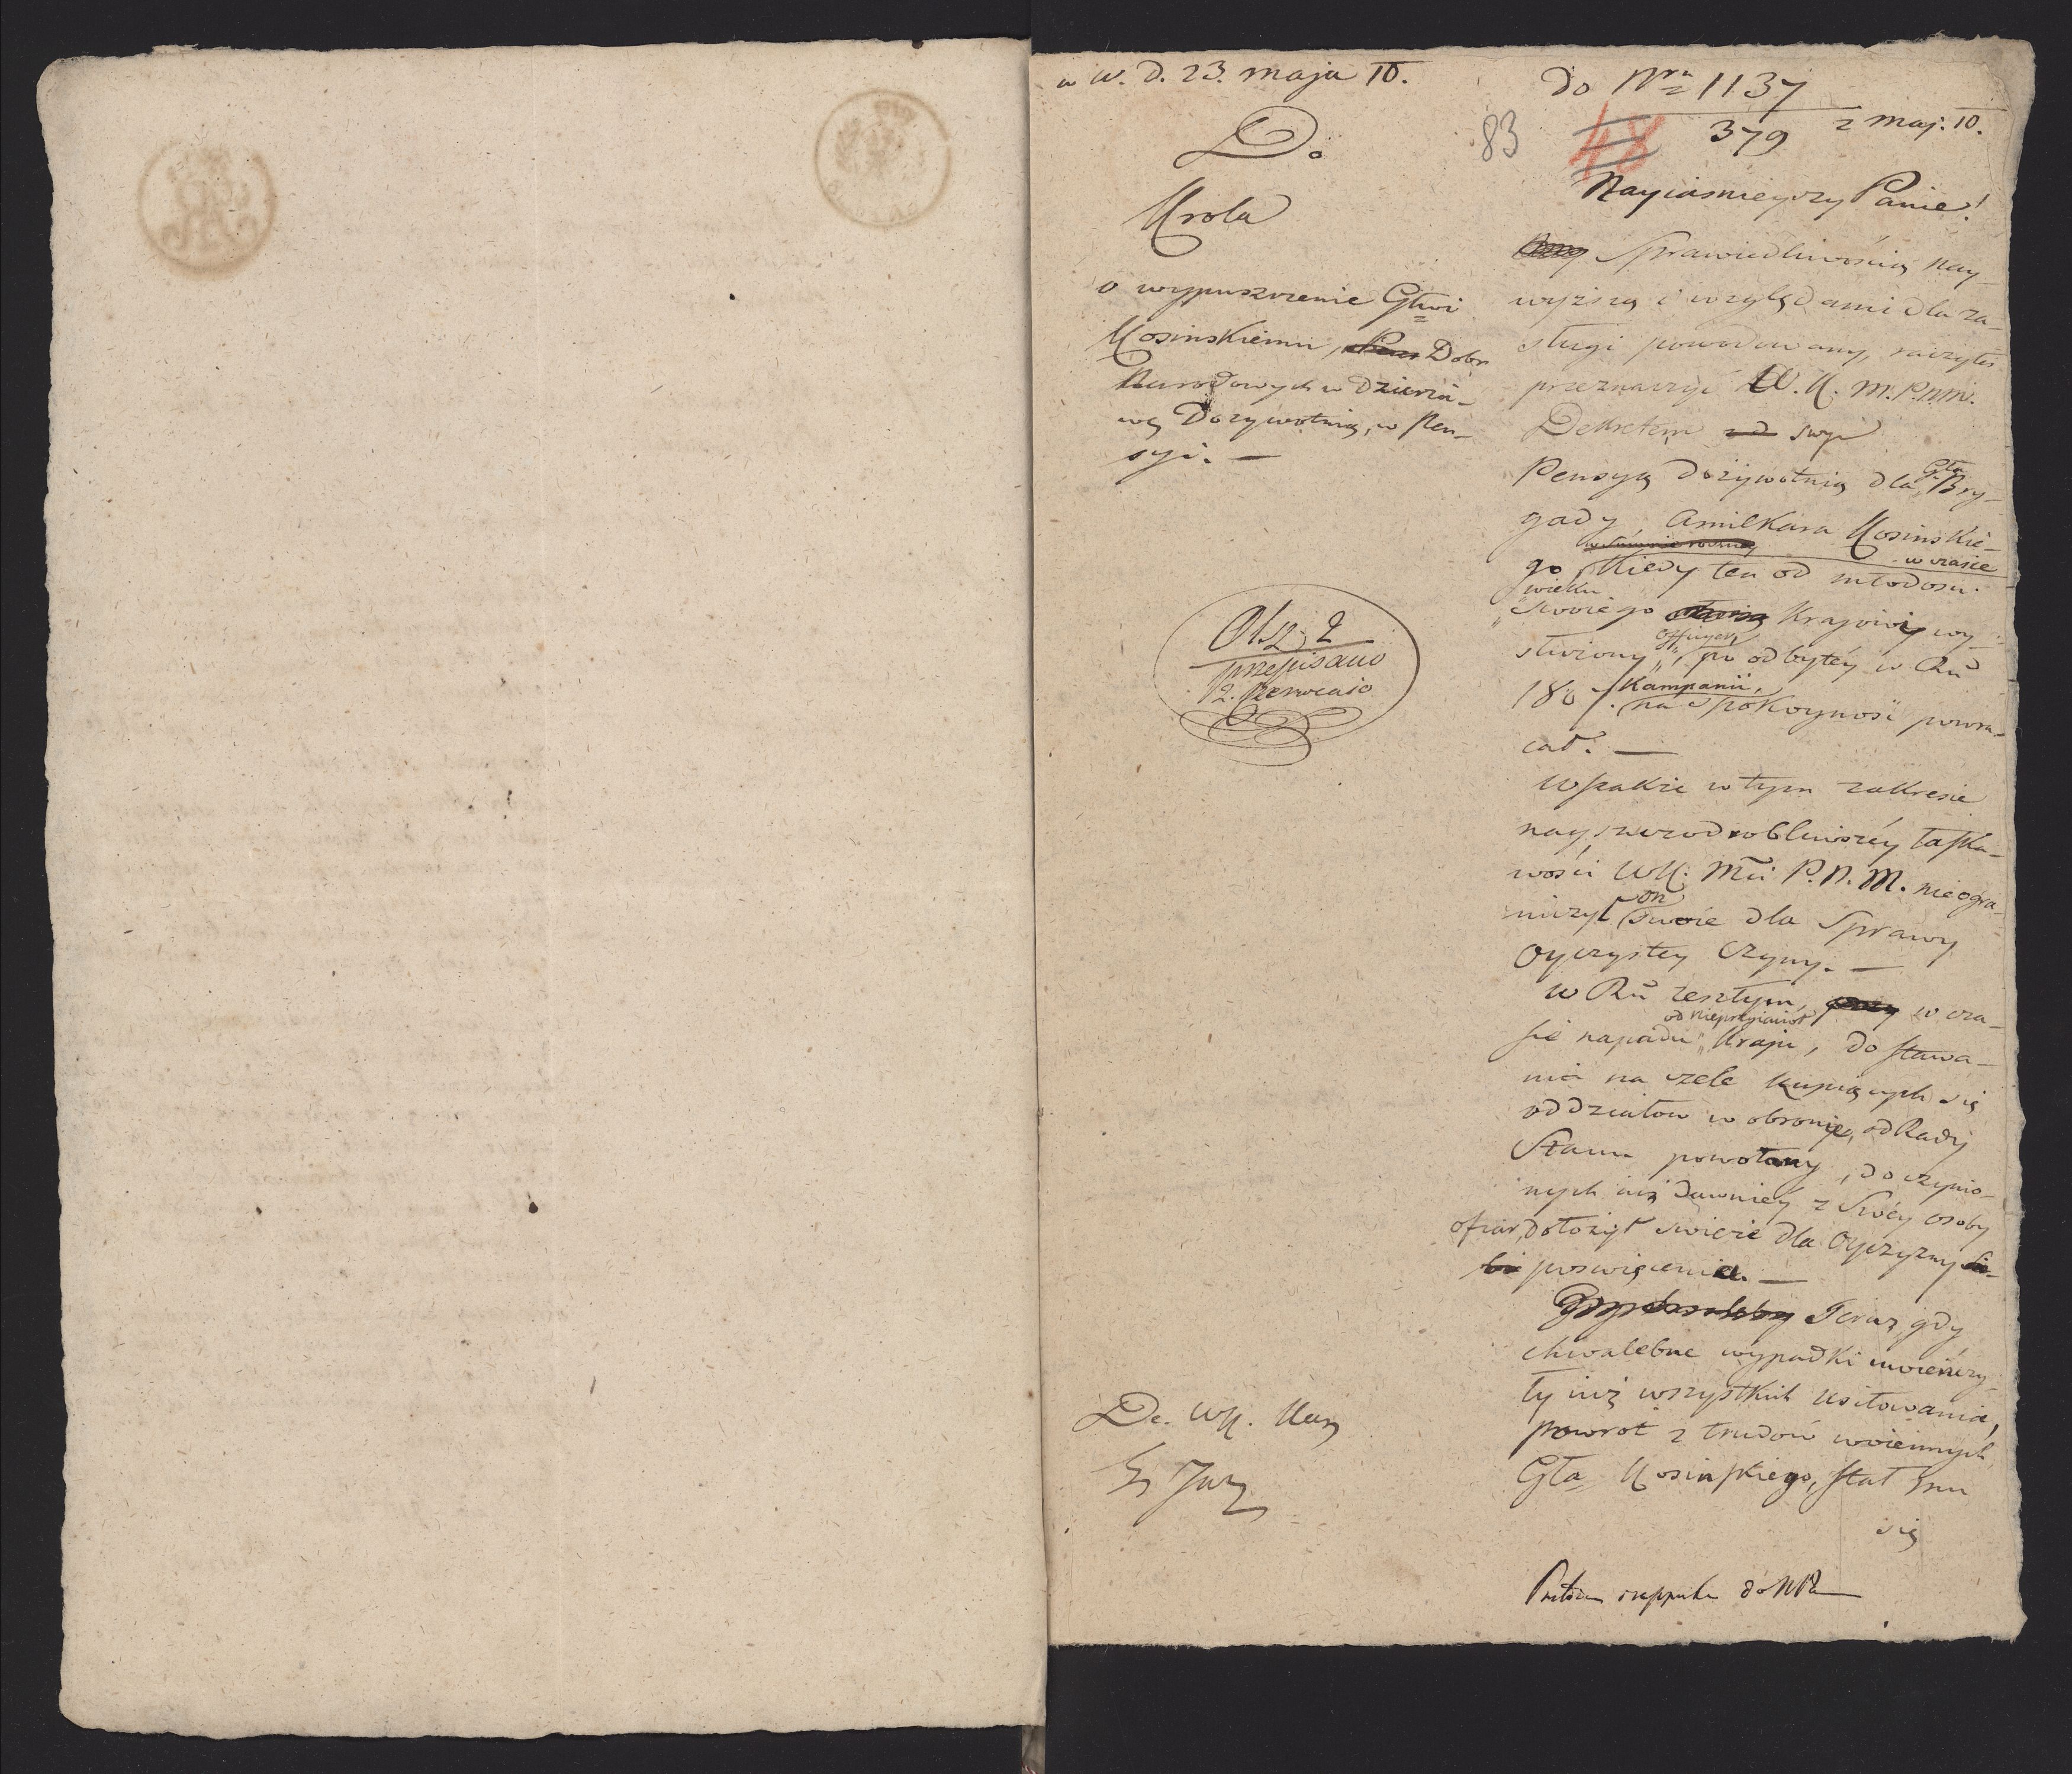 w W. d. 23. maja 10.
Do
Krola
o wypuszczenie Głwi
Kosinskiemu, Dobr
Narodowych w dzierża-
wę Dozywotnią, w Pen-
syi. —
przepisano
2. Czerwca
do Nru 1137
379 z maj. 10.
83
48
Nayiasnieyszy Panie!
Sprawiedliwością nay-
wyższą i względami dla za-
sługi powodowany, raczyłeś
przeznaczyć W. K. M. P. N. M.
Dekretem swym
Pensyą dożywotnią dla Gła Bry-
gady, Amilkara Kosinskie-
go w czasie
Kiedy ten od młodości
wieku
swoiego Krajowi wy-
służony officyer, po odbytéy w Rū
1807. Kampanii, na spokoyność powra-
cał. —
Wszakże w tym zakresie
nayszczodrobliwszéy łaska-
wości WK. Mci P. N. M. nie ogra-
niczył on swoie dla Sprawy
Oyczystey Czyny. —
W Rū zeszłym, w cza-
sie napadu od nieprzyiaciół Kraju, do stawa-
nia na czele kupiących się
oddziałow w obronie, od Rady
Stanu powołany, do czynio-
nych iuż dawniéy z Swéy osoby
ofiar, dołożył swieże dla Oyczyzny
poswięcenia. —
Teraz gdy
chwalebne wypadki uwieńczy-
ły iuż wszystkich usiłowania,
powrot z trudów woiennych
Gła Kosinskiego, stał mu
się